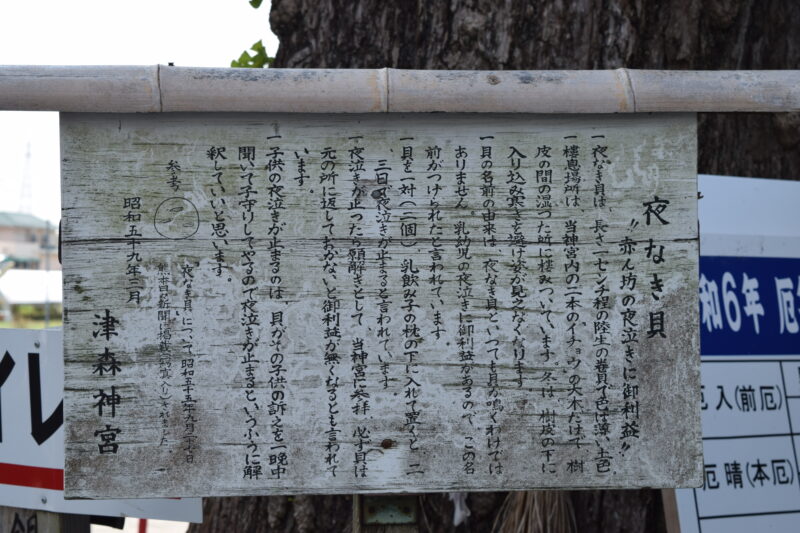 夜なき貝
〝赤ん坊の夜泣きに御利益〟
一夜なき貝は、長さ一センチ程の陸生の巻貝で色は薄い土色
一棲息場所は、当神宮内の二本のイチョウの大木に、樹
皮の間の湿った所に棲みついています。冬は、樹皮の下に
入り込み寒さを避け姿が見えなくなります
一貝の名前の由来は、夜なき貝といっても貝が鳴くわけでは
ありません。乳幼児の夜泣きに御利益があるので、この名
前がつけられたと言われています
一貝を一対(二個)乳飲み子の枕の下に入れて置くと、二
三日で夜泣きが止まると言われています
一夜泣きが止ったら願解きとして、当神宮に参拝、必ず貝は
元の所に返しておかないと御利益が無くなるとも言われて
います。
一子供の夜泣きが止まるのは、貝がその子供の訴えを一晩中
聞いて子守りしてやるので夜泣きが止まるというふうに解
釈していいと思います。
参考
夜なき貝について昭和五十五年九月二十七日
熊本日日新聞に掲載(写真入り)されました
昭和五十九年三月
津森神宮
和6年 厄
厄入(前厄)
厄晴(本厄)
イレ